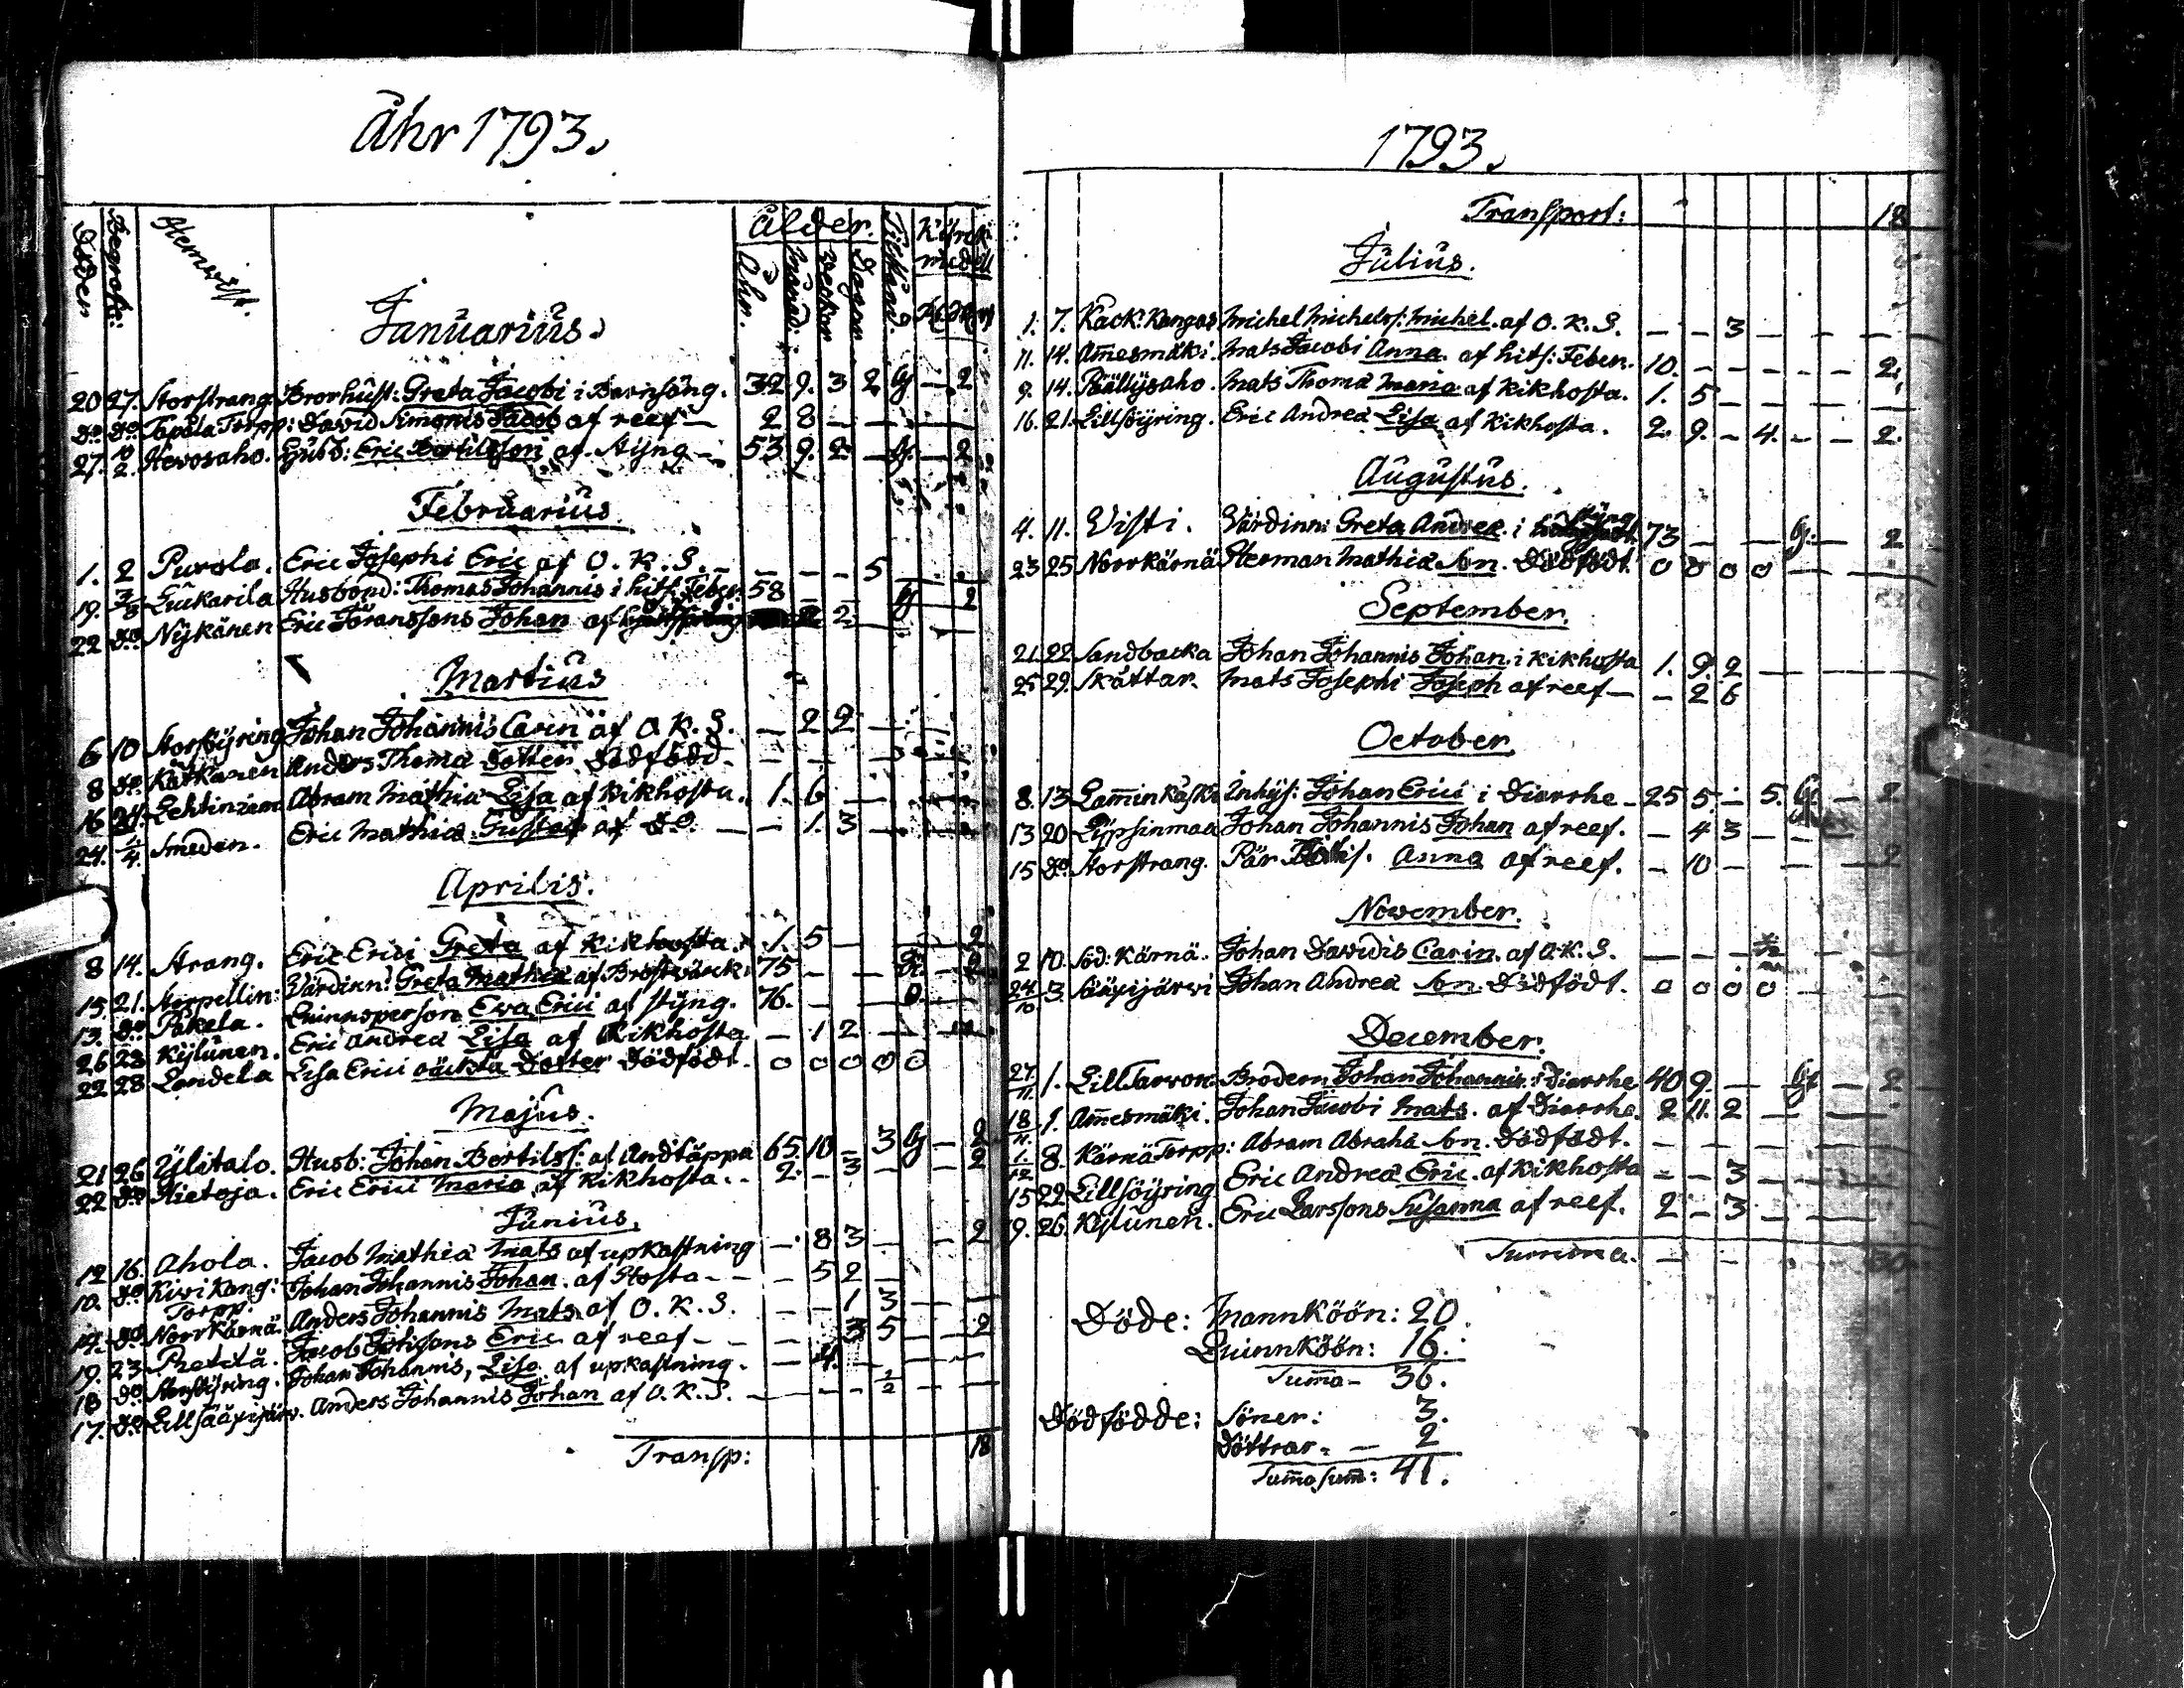 Åhr 1793.
Döden Begrofn: Hemvist. Ålder. Tillstånd.
Åhr. Månad: Veckor Dagar
Januarius.
20 27. Storstrang. Brorhust: Greta Jacobi i Barnsäng. 32 9. 3 2 G — 2
do do Tapala Torpp: David Simonis Jacob af reef — 2 8 — — — —
27. 10/2. Hevosaho. Gubb: Eric Bertilsson af Styng — 53 9. 2 — G. — 2
Februarius
1. 2 Purola. Eric Josephi Eric af O. K. S. — — — 5
19. 3/3 Luckarila Husbond: Thomas Johannis i hits: Feber 58 — — G 2
22 do Nykänen Eric Göranssons Johan af 2 2 — —
Martius
6 10 Storsöyring Johan Johannis Carin af O. K. S. — 2 2 —
8 do Kätkänen Anders Thomæ Dotter Dödfödd — — —
16 24. Lehtiniem Abram Mathiæ Lisa af Kikhosta. 1. 6 —
24. 1/4. Smeden. Eric Mathiæ Gustaf af do. — — 1. 3 —
Aprilis.
8 14. Strang. Eric Erici Greta af Kikhosta. 1. 5 — — 2
15. 21. Storpellin: Värdinn: Greta Mathiæ af Bröstvärck. 75 — — G. 2
13. do Pakela. Quinnsperson Eva Erici af styng. 76. — — 0. —
26 28 Kylunen. Eric Andreæ Lisa af Kikhosta — 1 2 — —
22 28 Landela Lisa Erici oäckta Dotter Dödfödt. 0 0 0 0 0
Majus.
21 26 Ylitalo. Husb: Johan Bertilss: af Andtäppa 65. 10 — 3 G — 2
22 do Hietoja. Eric Erici Maria af Kikhosta. 2. — 3 — — 2
Junius.
12 16. Ahola. Jacob Mathiæ Mats af upkastning — 8 3 — — 2
10. do Kivikang: Torpp: Johan Johannis Johan. af Hosta — — 5 2 —
14. do Norrkärnä Anders Johannis Mats af O. K. S. — — 1 3 — —
19. 23 Prettä. Jacob Johssons Eric af reef — — 3 5 — 2
18 do Storsöyring. Johan Johannis, Lisa af upkastning. — 4. — — —
17. do Lillsääxijärv. Anders Johannis Johan af O. K. S. — — — 1/2 — —
Transp: 18
1793.
Transport: 18
Julius.
1. 7. Kack.Kangas Michel Michelss: Michel. af O. K. S. — — 3 — — —
11. 14. Am̄esmäki. Mats Jacobi Anna. af hits: Feber. 10. — — — — — 2.
9. 14. Päällysaho. Mats Thomæ Maria af Kikhosta. 1. 5 — — — —
16. 21. Lillsöyring. Eric Andreæ Lisa af Kikhosta. 2. 9. — 4. — — 2.
Augustus.
4. 11. Visti. Värdinn: Greta Andreæ i styng 73 — — G. — 2
23 25 Norrkärnä Herman Mathiæ Son. Dödfödt. 0 0 0 0 — —
September.
21. 22 Sandbacka Johan Johannis Johan i Kikhosta 1. 9. 2 — — —
25 29. Skättar. Mats Josephi Joseph af reef — — 2 6
October.
8. 13 Lam̄inkaski Inhys: Johan Erici i Diarrhe — 25 5. — 5. G. — 2
13 20 Lypsinmaa Johan Johannis Johan af reef. — 4 3 — —
15 do Storstrang. Pär Anna af reef. — 10 — — — 2
November.
2 10. Söd: Kärnä. Johan Davidis Carin. af O. K. S. — — — — —
24/10. 3. Sääxijärvi Johan Andreæ Son. Dödfödt. 0 0 0 0 — —
December.
27/11. 1. LillTarvon. Brodern Johan Johannis i Diarrhe 40 9. — G — 2
18/11. 1. Am̄esmäki. Johan Jacobi Mats. af Diarrhe. 2 11. 2 — —
1./12 8. Kärnä Torpp: Abram Abrahæ Son. Dödfödt. — — — — —
15 22 Lillsöyring Eric Andreæ Eric. af Kikhosta — — 3 — —
19. 26. Kylunen. Eric Larssons Susanna af reef. 2 — 3 — —
Summa. — — 30
Döde: Mannköön: 20.
Quinnköön: 16.
Sum̄a — 36.
Dödfödde: Söner: 3.
Döttrar — 2
Sum̄a sum̄: 41.